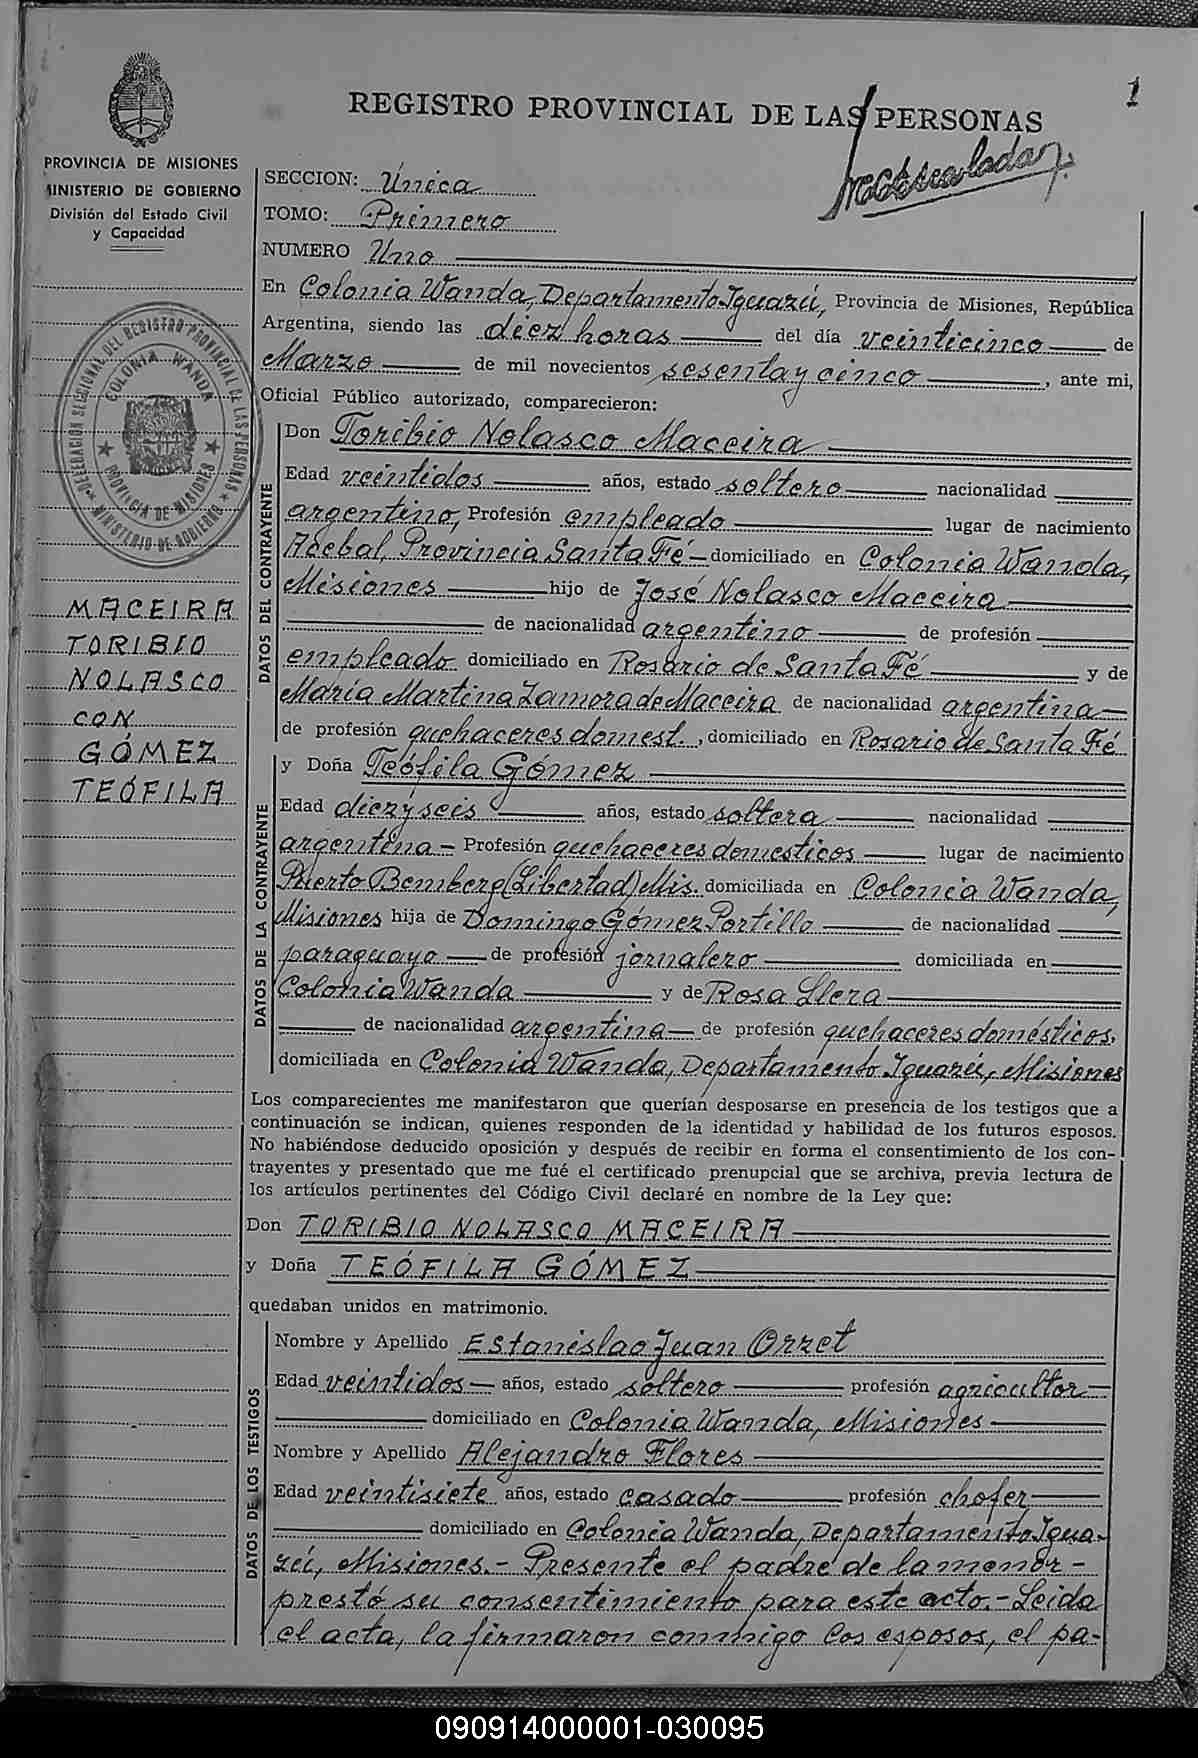 1
REGISTRO PROVINCIAL DE LAS PERSONAS
PROVINCIA DE MISIONES
MINISTERIO DE GOBIERNO
División del Estado Civil
y Capacidad
DELEGACION SECCIONAL DEL REGISTRO PROVINCIAL DE LAS PERSONAS
COLONIA WANDA
PROVINCIA DE MISIONES
MINISTERIO DE GOBIERNO
MACEIRA
TORIBIO
NOLASCO
CON
GÓMEZ
TEÓFILA
SECCION: Única
TOMO: Primero
NUMERO Uno
En Colonia Wanda, Departamento Iguazú, Provincia de Misiones, República
Argentina, siendo las diez horas del día veinticinco de
Marzo de mil novecientos sesenta y cinco, ante mi,
Oficial Público autorizado, comparecieron:
DATOS DEL CONTRAYENTE
Don Toribio Nolasco Maceira
Edad veintidos años, estado soltero nacionalidad
argentino, Profesión empleado lugar de nacimiento
Acebal, Provincia Santa Fé - domiciliado en Colonia Wanda,
Misiones hijo de José Nolasco Maceira
de nacionalidad argentino de profesión
empleado domiciliado en Rosario de Santa Fé y de
María Martina Zamora de Maceira de nacionalidad argentina
de profesión quehaceres domest., domiciliado en Rosario de Santa Fé
DATOS DE LA CONTRAYENTE
y Doña Teófila Gómez
Edad diezyseis años, estado soltera nacionalidad
argentina - Profesión quehaceres domesticos lugar de nacimiento
Puerto Bemberg (Libertad) Mis. domiciliada en Colonia Wanda,
Misiones hija de Domingo Gómez Portillo de nacionalidad
paraguayo de profesión jornalero domiciliada en
Colonia Wanda y de Rosa Llera
de nacionalidad argentina de profesión quehaceres domésticos.
domiciliada en Colonia Wanda, Departamento Iguazú, Misiones
Los comparecientes me manifestaron que querían desposarse en presencia de los testigos que a
continuación se indican, quienes responden de la identidad y habilidad de los futuros esposos.
No habiéndose deducido oposición y después de recibir en forma el consentimiento de los con-
trayentes y presentado que me fué el certificado prenupcial que se archiva, previa lectura de
los artículos pertinentes del Código Civil declaré en nombre de la Ley que:
Don TORIBIO NOLASCO MACEIRA
y Doña TEÓFILA GÓMEZ
quedaban unidos en matrimonio.
DATOS DE LOS TESTIGOS
Nombre y Apellido Estanislao Juan Orzet
Edad veintidos años, estado soltero profesión agricultor
domiciliado en Colonia Wanda, Misiones
Nombre y Apellido Alejandro Flores
Edad veintisiete años, estado casado profesión chofer
domiciliado en Colonia Wanda, Departamento Igua-
zú, Misiones.- Presente el padre de la menor -
prestó su consentimiento para este acto.- Leida
el acta, la firmaron conmigo los esposos, el pa-
090914000001-030095